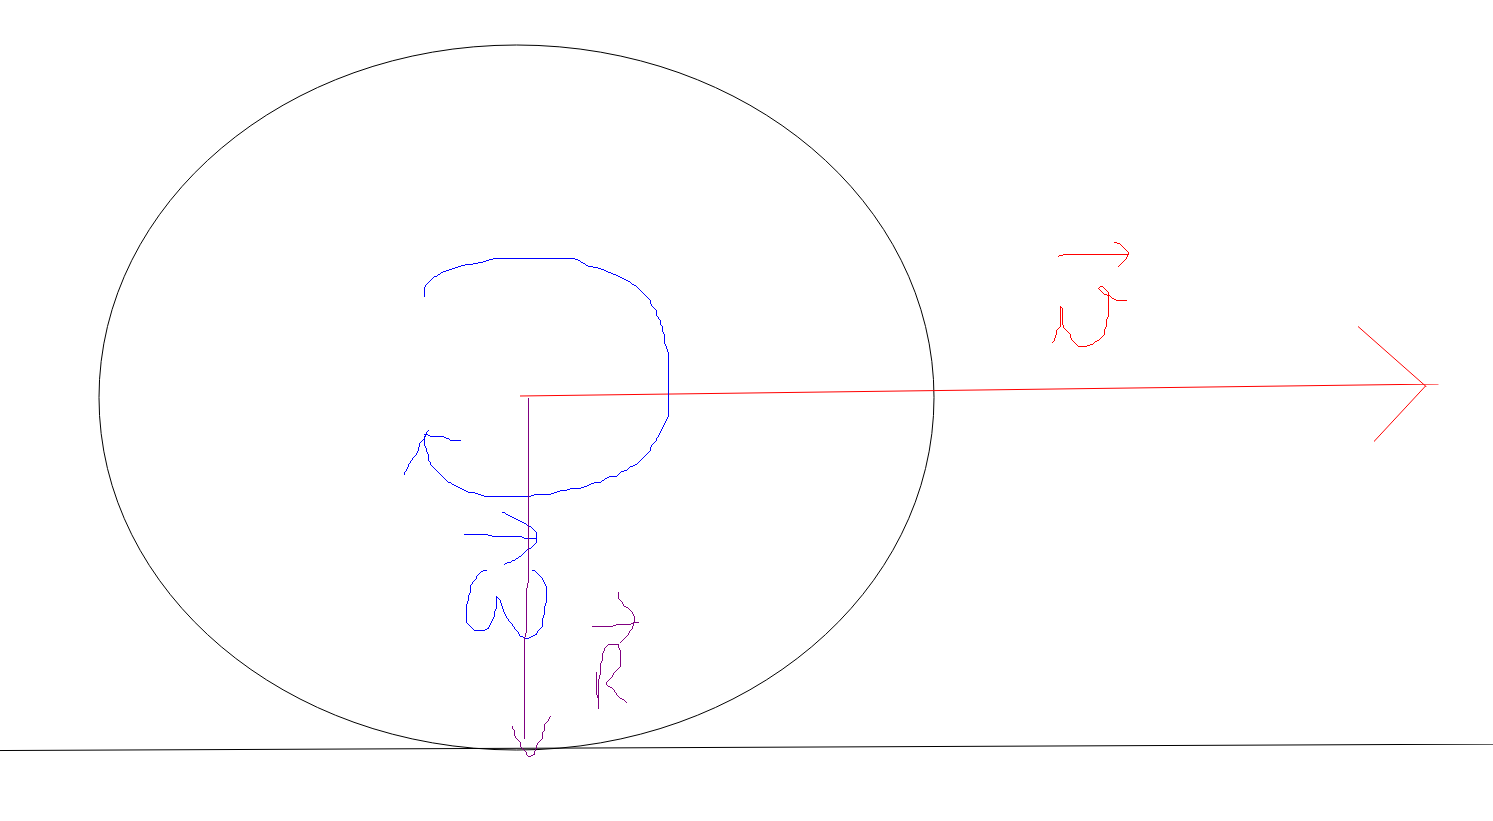 v⃗
ω⃗
R⃗